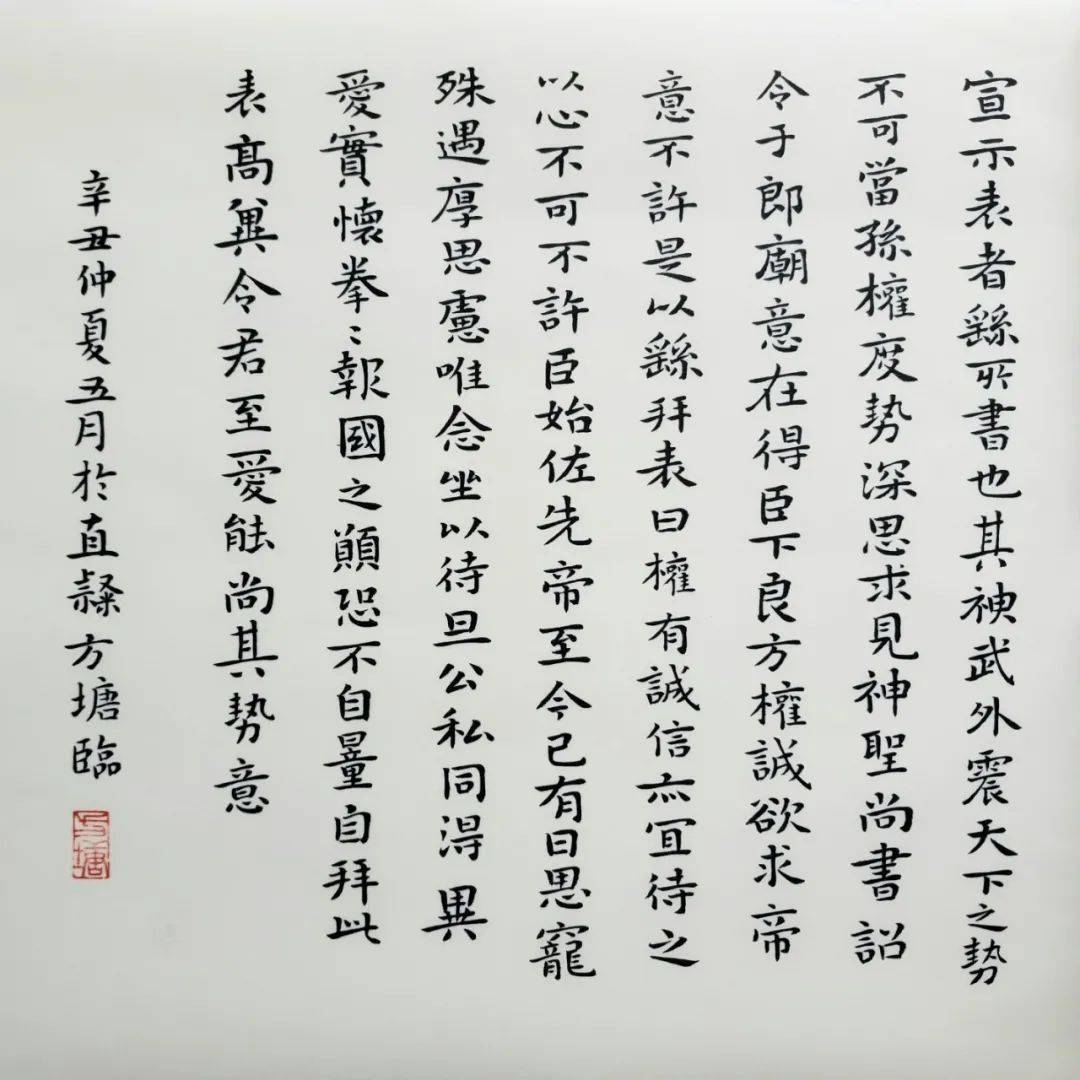 宣示表者繇所書也其神武外震天下之勢
不可當孫權度勢深思求見神聖尚書詔
令于郎廟意在得臣下良方權誠欲求帝
意不許是以繇拜表曰權有誠信亦宜待之
以心不可不許臣始佐先帝至今已有曰思寵
殊遇厚思慮唯念坐以待旦公私同得異
愛實懷拳〻報國之顛恐不自量自拜此
表高異令君至愛能尚其勢意
辛丑仲夏五月於直隸方塘臨
方塘